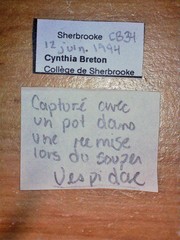 Sherbrooke CB34
12 juin. 1994
Cynthia Breton
Collège de Sherbrooke
Capturé avec
un pot dans
une remise
lors du souper
Vespidae